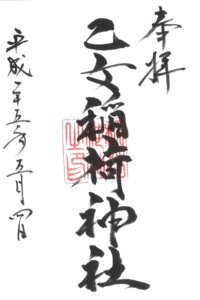 奉拝
乙女稲荷神社
平成二十五年五月四日